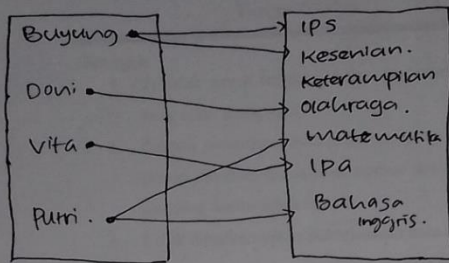 Buyung
Doni
Vita
Putri.
IPS
Kesenian.
Keterampilan
Olahraga.
Matematika
IPA
Bahasa
Inggris.